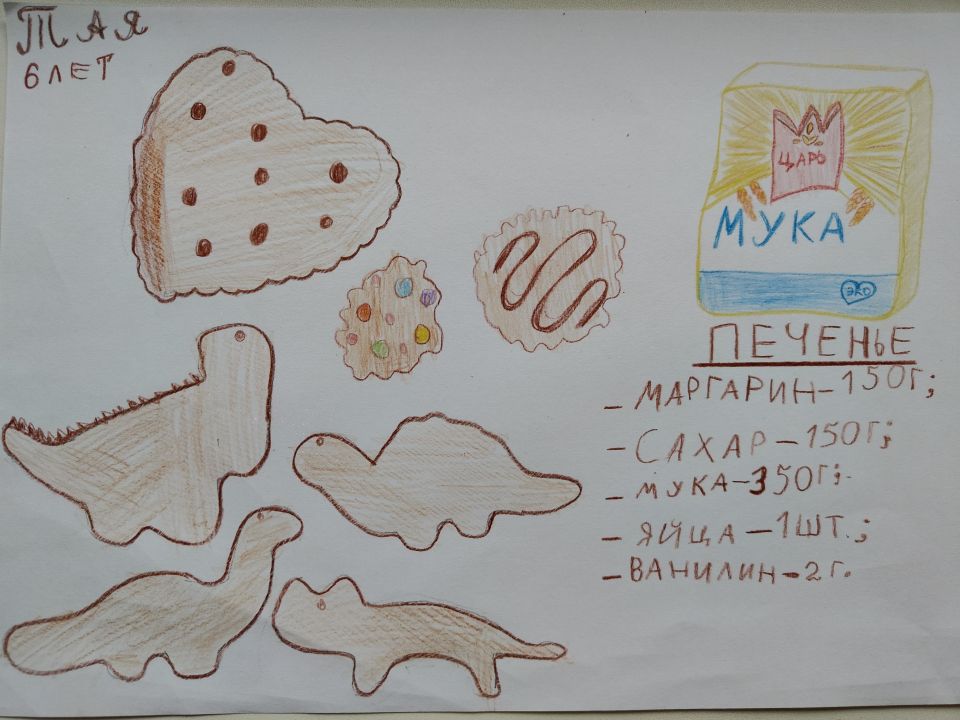 ТАЯ
6 ЛЕТ
ЦАРЬ
МУКА
ЭКО
ПЕЧЕНЬЕ
- МАРГАРИН - 150Г;
- САХАР - 150Г;
- МУКА - 350Г;
- ЯЙЦА - 1ШТ.;
- ВАНИЛИН - 2 Г.